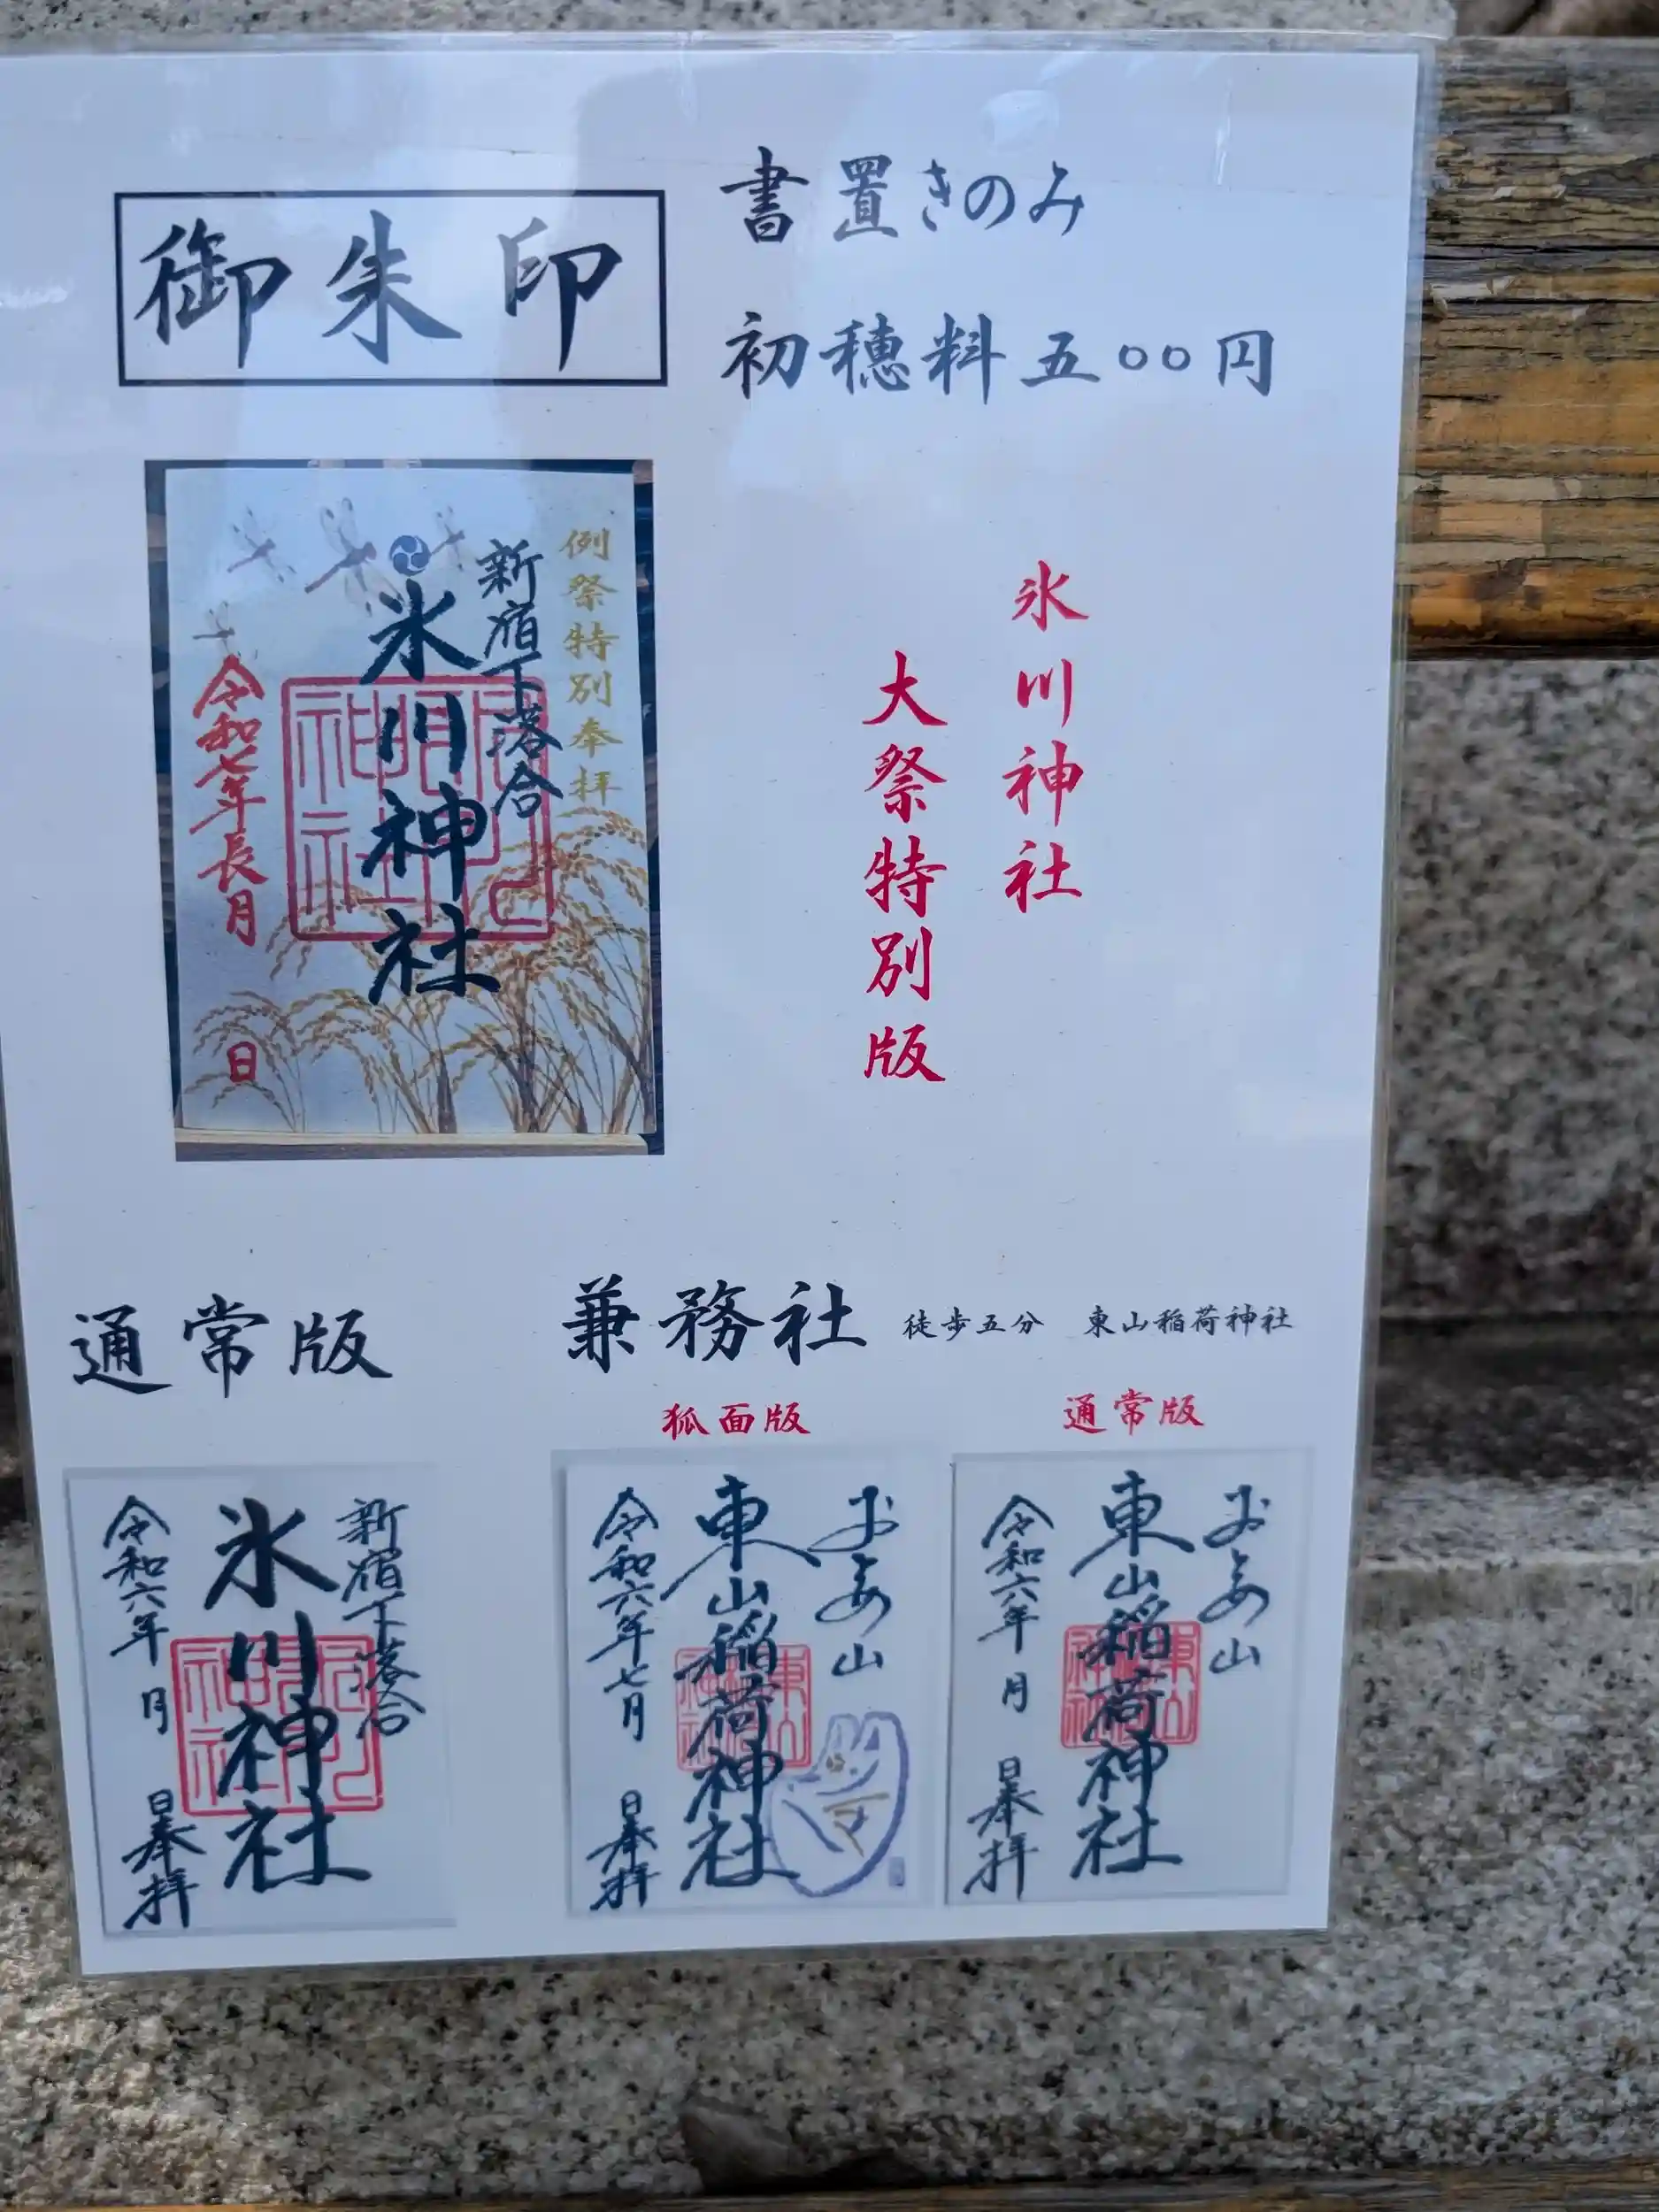 御朱印
書置きのみ
初穂料五〇〇円
氷川神社
大祭特別版
例祭特別奉拝
新宿下落合
氷川神社
令和七年長月
日
通常版
兼務社 徒歩五分 東山稲荷神社
狐面版
通常版
新宿下落合
氷川神社
令和六年 月 日奉拝
おとめ山
東山稲荷神社
令和六年七月 日奉拝
おとめ山
東山稲荷神社
令和六年 月 日奉拝